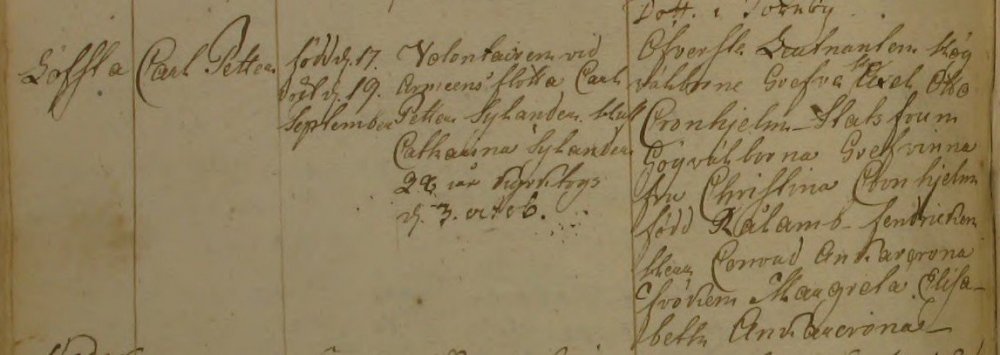 Dott. i Tornby
Löfsta
Carl Petter
född d. 17.
döpt d. 19.
September
Volontairen vid
Armeens flotta Carl
Petter Sylander. Hust
Catharina Sylander
28 år kyrktogs
d. 3. octob.
Öfverste Leutnanten Hög
välborne Grefve Axel Otto
Cronhjelm - Stats frun
Högvälborna Grefvinna
fru Christina Cronhjelm
född Rålamb - fendricken
Herr Conrad Anckarcrona
fröken Margreta Elisa-
beth Anckarcrona -